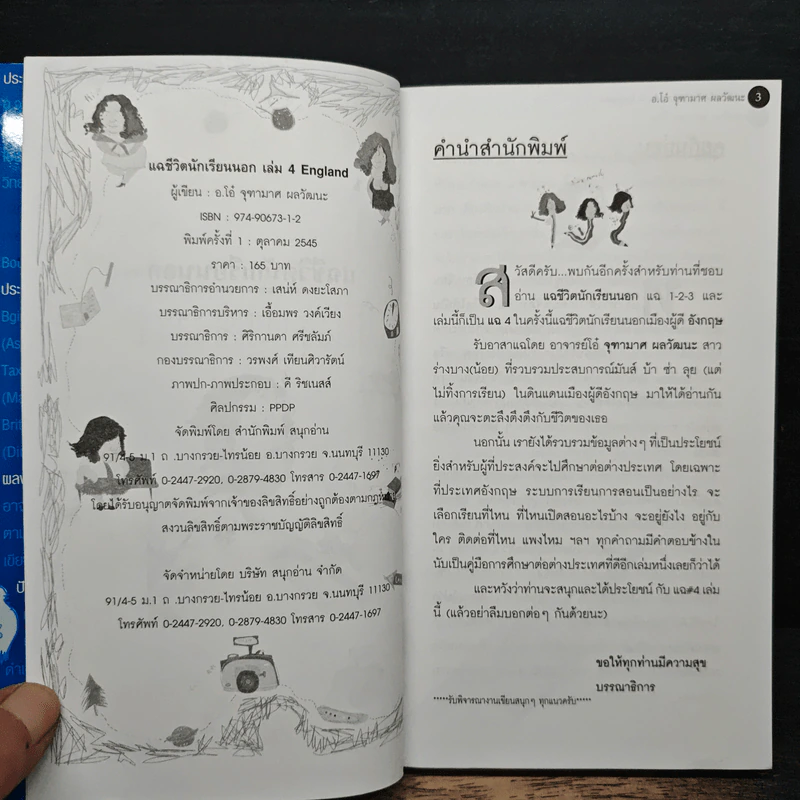 แฉชีวิตนักเรียนนอก เล่ม 4 England
ผู้เขียน : อ.โอ๋ จุฑามาศ ผลวัฒนะ
ISBN : 974-90673-1-2
พิมพ์ครั้งที่ 1 : ตุลาคม 2545
ราคา : 165 บาท
บรรณาธิการอำนวยการ : เสน่ห์ ดงยะโสภา
บรรณาธิการบริหาร : เอื้อมพร วงค์เวียง
บรรณาธิการ : ศิริกานดา ศรีชลัมภ์
กองบรรณาธิการ : วรพงศ์ เทียนศิวารัตน์
ภาพปก-ภาพประกอบ : คี ริชเนสส์
ศิลปกรรม : PPDP
จัดพิมพ์โดย สำนักพิมพ์ สนุกอ่าน
91/4-5 ม.1 ถ .บางกรวย-ไทรน้อย อ.บางกรวย จ.นนทบุรี 11130
โทรศัพท์ 0-2447-2920, 0-2879-4830 โทรสาร 0-2447-1697
โดยได้รับอนุญาตจัดพิมพ์จากเจ้าของลิขสิทธิ์อย่างถูกต้องตามกฎหมาย
สงวนลิขสิทธิ์ตามพระราชบัญญัติลิขสิทธิ์
จัดจำหน่ายโดย บริษัท สนุกอ่าน จำกัด
91/4-5 ม.1 ถ .บางกรวย-ไทรน้อย อ.บางกรวย จ.นนทบุรี 11130
โทรศัพท์ 0-2447-2920, 0-2879-4830 โทรสาร 0-2447-1697
อ.โอ๋ จุฑามาศ ผลวัฒนะ 3
คำนำสำนักพิมพ์
สวัสดีครับ...พบกันอีกครั้งสำหรับท่านที่ชอบ
อ่าน แฉชีวิตนักเรียนนอก แฉ 1-2-3 และ
เล่มนี้ก็เป็น แฉ 4 ในครั้งนี้แฉชีวิตนักเรียนนอกเมืองผู้ดี อังกฤษ
รับอาสาแฉโดย อาจารย์โอ๋ จุฑามาศ ผลวัฒนะ สาว
ร่างบาง(น้อย) ที่รวบรวมประสบการณ์มันส์ บ้า ซ่า ลุย (แต่
ไม่ทิ้งการเรียน) ในดินแดนเมืองผู้ดีอังกฤษ มาให้ได้อ่านกัน
แล้วคุณจะตะลึงตึงตึงกับชีวิตของเธอ
นอกนั้น เรายังได้รวบรวมข้อมูลต่างๆ ที่เป็นประโยชน์
ยิ่งสำหรับผู้ที่ประสงค์จะไปศึกษาต่อต่างประเทศ โดยเฉพาะ
ที่ประเทศอังกฤษ ระบบการเรียนการสอนเป็นอย่างไร จะ
เลือกเรียนที่ไหน ที่ไหนเปิดสอนอะไรบ้าง จะอยู่ยังไง อยู่กับ
ใคร ติดต่อที่ไหน แพงไหม ฯลฯ ทุกคำถามมีคำตอบข้างใน
นับเป็นคู่มือการศึกษาต่อต่างประเทศที่ดีอีกเล่มหนึ่งเลยก็ว่าได้
และหวังว่าท่านจะสนุกและได้ประโยชน์ กับ แฉ#4 เล่ม
นี้ (แล้วอย่าลืมบอกต่อๆ กันด้วยนะ)
ขอให้ทุกท่านมีความสุข
บรรณาธิการ
*****รับพิจารณางานเขียนสนุกๆ ทุกแนวครับ*****